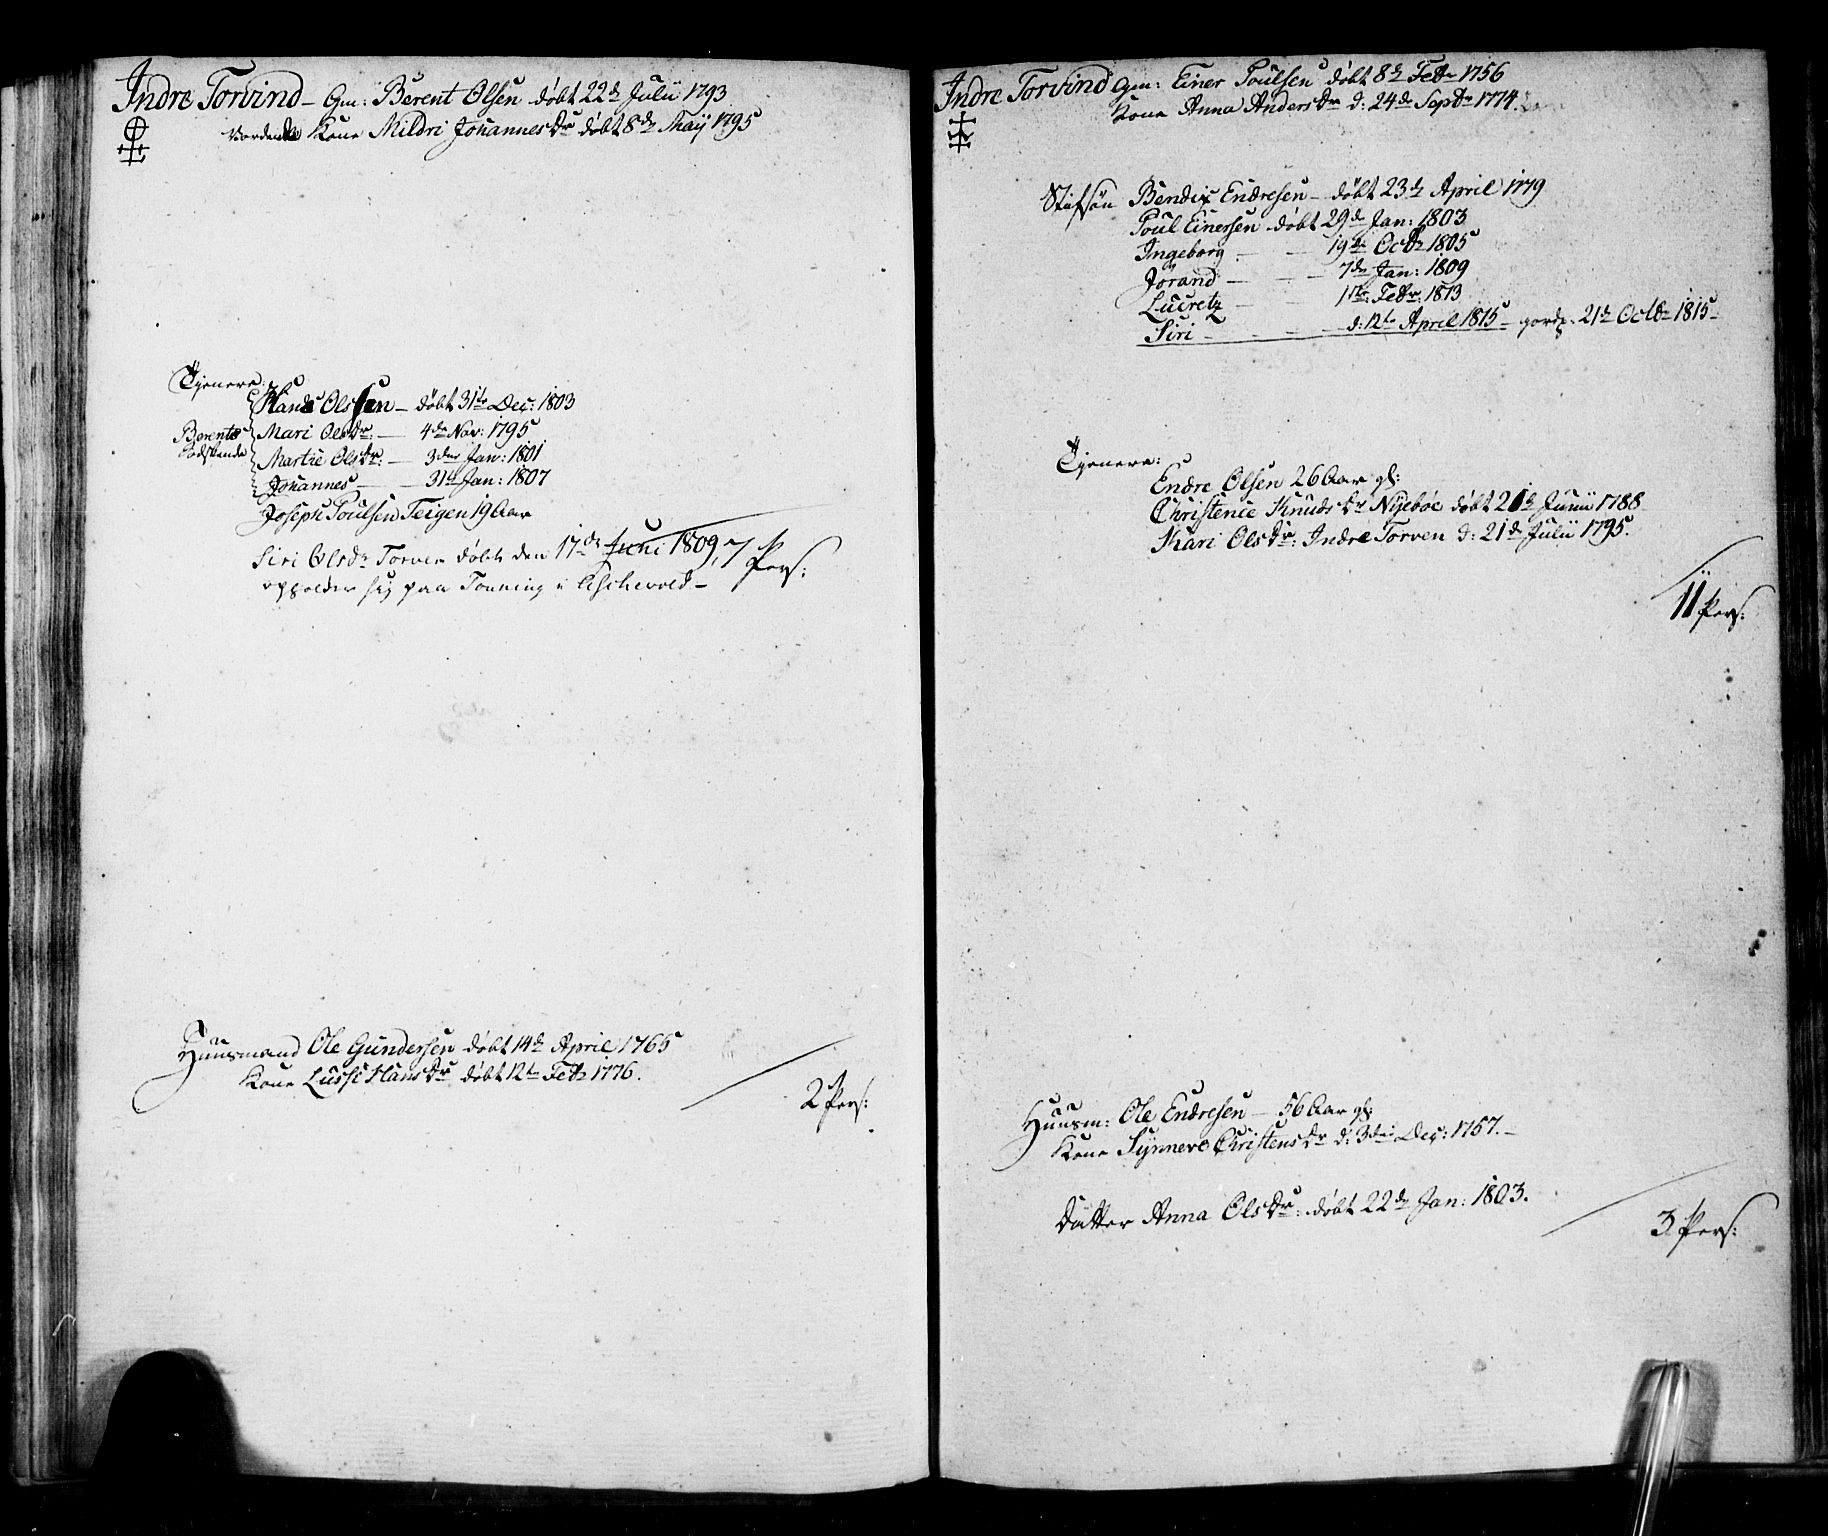 Indre Torvind – Gm: Berent Olsen døbt 22de Julii 1793
Vordende Kone Mildri Johannesdr døbt 8de Maÿ 1795
Tjenere:
Hans Olssen – døbt 31te Dec: 1803
Mari Olsdr: — 4de Nov: 1795
Berents
Sødskende
Marthe Olsdr: — 3die Jan: 1801
Johannes — 31te Jan: 1807
Joseph Poulsen Teigen 19 Aar
Siri Olsdr Torven døbt den 17de Juni 1809,
7 Pers:
opholder sig paa Tonning i Aschevold –
Huusmand Ole Gundersen døbt 14de April 1765
Kone Lussi Hansdr døbt 12te Febr 1776.
2 Pers:
Indre Torvind Gm: Einer Poulsen døbt 8de Febr 1756
Kone Anna Andersdr d: 24de Septr 1774.
Stifsøn Bendix Endresen – døbt 23de April 1779
Poul Einersen døbt 29de Jan: 1803
Ingeborg — — 19de Octbr 1805
Jorand — — 7de Jan: 1809
Lucretz — 1ste Febr: 1813
Siri — — d: 12te April 1815 – 21de Octbr 1815 –
Tjenere:
Endre Olsen 26 Aar gl:
Christence Knudsdr Nijebøe døbt 21de Junii 1788
Mari Olsdr: Indre Torven d: 21de Julii 1795.
11 Pers:
Huusm: Ole Endresen – 56 Aar gl:
Kone Synneve Christensdr d: 3die Dec: 1757. –
Datter Anna Olsdr: døbt 22de Jan: 1803.
3 Pers: